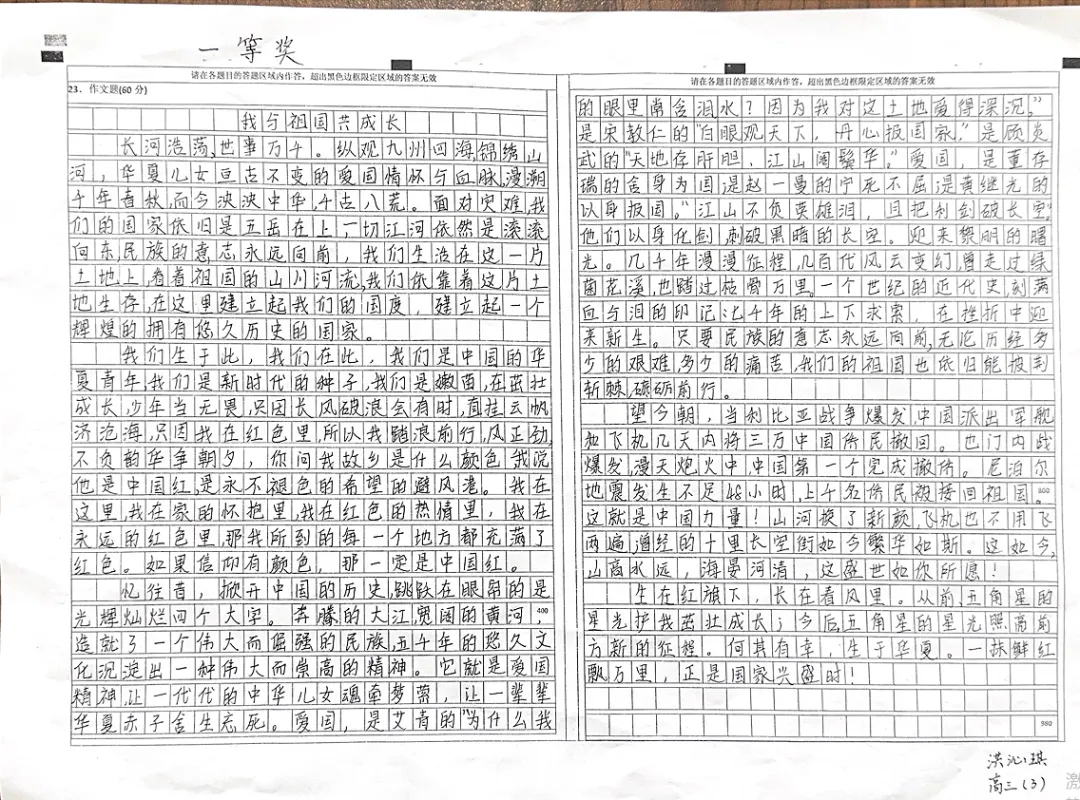 一等奖
请在各题目的答题区域内作答，超出黑色边框限定区域的答案无效
23．作文题(60分)
我与祖国共成长
长河浩荡,世事万千。纵观九州四海锦绣山
河，华夏儿女亘古不变的爱国情怀与血脉,漫溯
千年春秋,而今泱泱中华,千古八荒。面对灾难,我
们的国家依旧是五岳在上,一切江河依然是滚滚
向东,民族的意志永远向前，我们生活在这一片
土地上,看着祖国的山川河流,我们依靠着这片土
地生存,在这里建立起我们的国度，建立起一个
辉煌的拥有悠久历史的国家。
我们生于此，我们在此，我们是中国的华
夏青年,我们是新时代的种子,我们是嫩苗,在茁壮
成长,少年当无畏,只因长风破浪会有时,直挂云帆
济沧海,只因我在红色里,所以我踏浪前行,风正劲,
不负韶华争朝夕，你问我故乡是什么颜色,我说
他是中国红,是永不褪色的希望的避风港。我在
这里,我在家的怀抱里,我在红色的热情里，我在
永远的红色里,那我所到的每一个地方都充满了
红色。如果信仰有颜色，那一定是中国红。
忆往昔，掀开中国的历史,跳跃在眼帘的是
光辉灿烂四个大字。奔腾的大江,宽阔的黄河，
400
造就了一个伟大而倔强的民族,五千年的悠久文
化沉淀出一种伟大而崇高的精神。它就是爱国
精神,让一代代的中华儿女魂牵梦萦，让一辈辈
华夏赤子舍生忘死。爱国，是艾青的"为什么我
请在各题目的答题区域内作答，超出黑色边框限定区域的答案无效
的眼里常含泪水？因为我对这土地爱得深沉,"
是宋教仁的"白眼观天下，丹心报国家,"是顾炎
武的"天地存肝胆，江山阅鬓华,"爱国，是董存
瑞的舍身为国,是赵一曼的宁死不屈,是黄继光的
以身报国。"江山不负英雄泪，且把利剑破长空"
他们以身化剑,刺破黑暗的长空。迎来黎明的曙
光。几千年漫漫征程,几百代风云变幻,曾走过绿
茵花溪,也踏过枯骨万里,一个世纪的近代史,刻满
血与泪的印记;七千年的上下求索，在挫折中迎
来新生。只要民族的意志永远向前,无论历经多
少的艰难,多少的痛苦,我们的祖国也依归能披荆
斩棘,砥砺前行。
望今朝，当利比亚战争爆发,中国派出军舰
和飞机几天内将三万中国侨民撤回。也门内战
爆发,漫天炮火中中国第一个完成撤侨。尼泊尔
地震发生不足48小时,上千名侨民被接回祖国。
800
这就是中国力量！山河换了新颜,飞机也不用飞
两遍,曾经的十里长安街如今繁华如斯。这如今,
山高水远，海晏河清，这盛世如你所愿！
生在红旗下，长在春风里。从前,五角星的
星光护我茁壮成长；今后,五角星的星光照亮前
方新的征程。何其有幸，生于华夏。一抹鲜红
飘万里，正是国家兴盛时！
980
洪沁琪
高三(3)